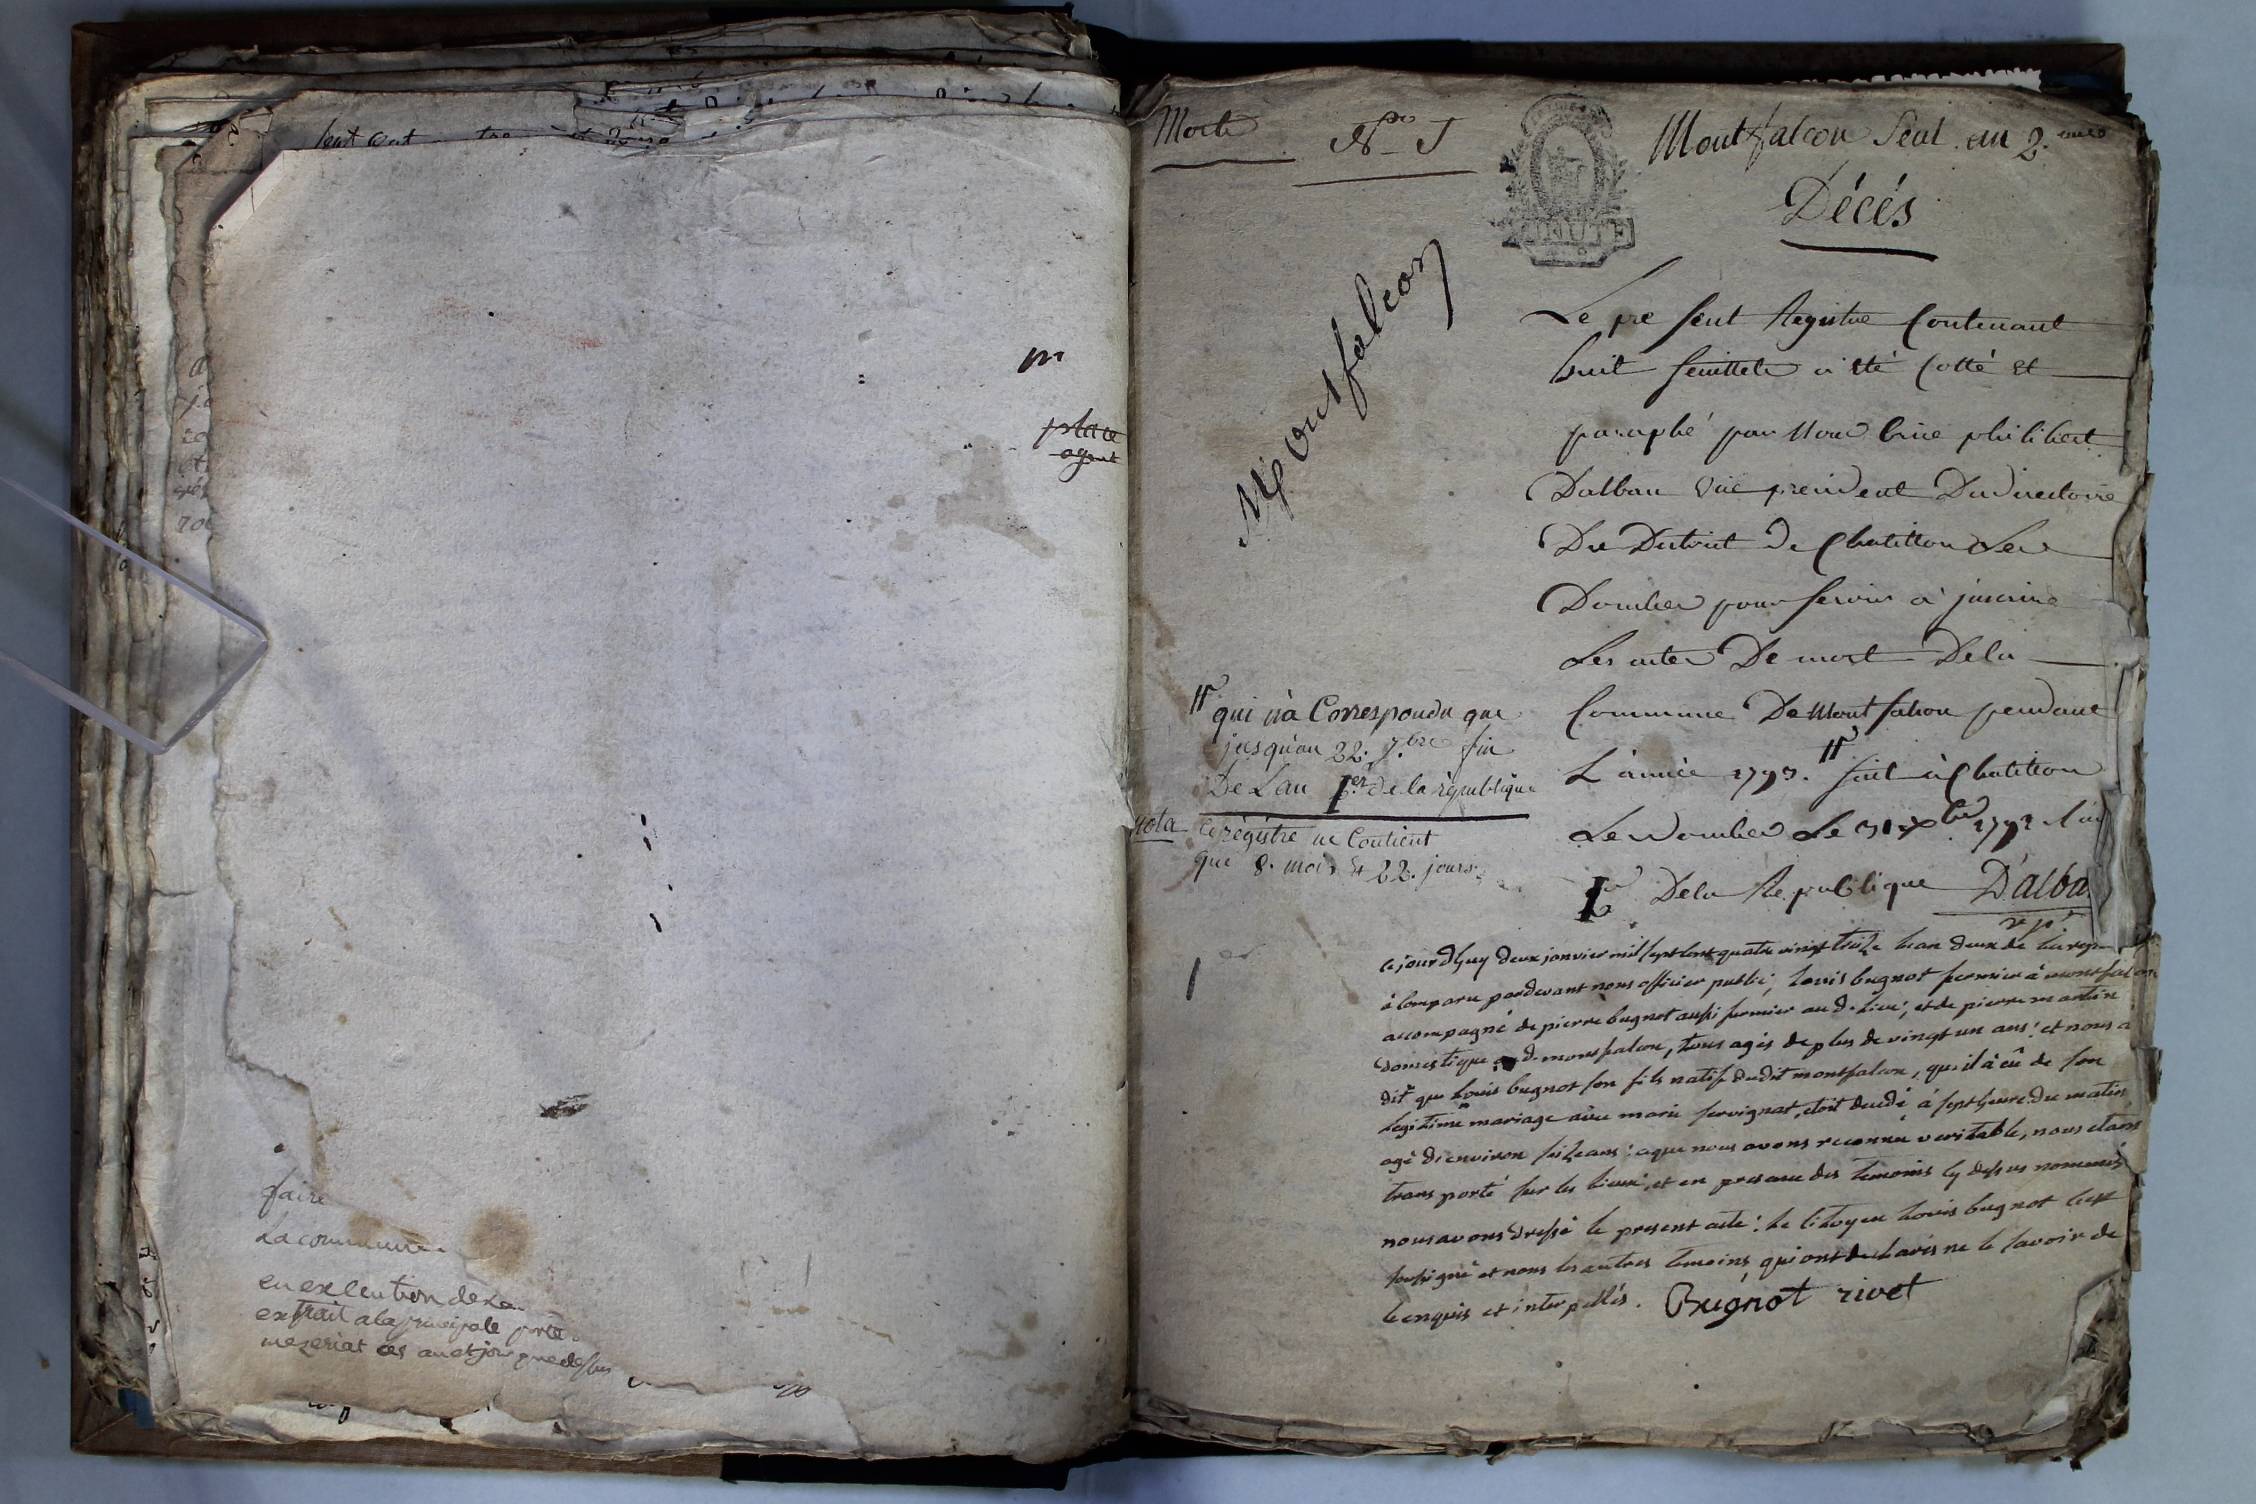 place
agent
faire
La commune
en execution de la
extrait a la principale porte
mezeriat les an et jour que dessus
Morts
N.ro 5
MINUTE
Montfalcon seul. an 2.eme
Décés
Montfalcon
Le present Registre Contenant
huit feuillets a été Cotté et
paraphé par Nous Brice philibert
Dalban vice president Du directoire
Du District de Chatillon Les
Dombes pour servir à jnscrire
Les actes De mort De la
Commune De Montfalcon pendant
L'année 1793. # fait à Chatillon
Les Dombes Le 31 Xbre 1792 l'an
1er De la Republique D'alba
# qui n'a Correspondu que
jusqu'au 22. 7.bre fin
De Lan 1er de la république
nota Ce régistre ne Contient
que 8. mois et 22. jours.
1er
ce jourdhuy deux janvier mil sept cent quatre vingt treize l'an deux de la rep
à comparu pardevant nous officier public, Louis bugnot fermier à montfalcon
accompagné de pierre bugnot aussi fermier au d. lieu, et de pierre martin
domestique au d. montfalcon, tous agés de plus de vingt un ans; et nous a
dit que Louis bugnot son fils natif dudit montfalcon, qu'il à eû de son
legitime mariage avec marie servignat, etoit decedé à sept heure du matin
agé d'environ seize ans; ce que nous avons reconnu veritable, nous etant
transporté sur les lieux, et en presence des temoins cy dessus nommés
nous avons dressé le present acte: le citoyen Louis bugnot s'est
soussigné et nous les autres temoins qui ont declarés ne le savoir de
ce enquis et interpellés. Bugnot rivet